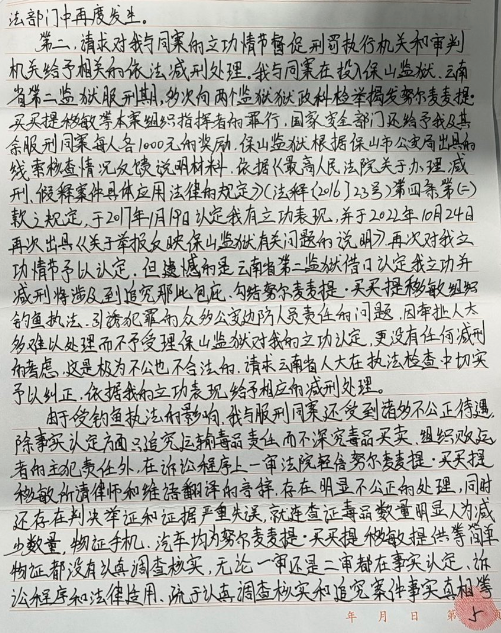 法部门中再度发生。
第二、请求对我与同案的立功情节督促刑罚执行机关和审判
机关给予相关的依法减刑处理。我与同案在投入保山监狱、云南
省第二监狱服刑期,多次向两个监狱狱政科检举揭发努尔麦麦提·
买买提穆敏等本案组织指挥者的罪行,国家安全部门还给予我及其
余服刑同案每人各1000元的奖励。保山监狱根据保山市公安局出具的
线索核查情况反馈说明材料,依据《最高人民法院关于办理减
刑、假释案件具体应用法律的规定》(法释〔2016〕23号)第四条第(二)
款之规定,于2017年1月19日认定我有立功表现,并于2022年10月24日
再次出具《关于举报反映保山监狱有关问题的说明》再次对我立
功情节予以认定。但遗憾的是云南省第二监狱借口认定我立功并
减刑将涉及到追究那些包庇、勾结努尔麦麦提·买买提穆敏组织
钓鱼执法、引诱犯罪的众多公安边防人员责任的问题,因牵扯人太
多难以处理而不予受理保山监狱对我的立功认定,更没有任何减刑
的考虑,这是极为不公也不合法的,请求云南省人大在执法检查中切实
予以纠正,依据我的立功表现给予相应的减刑处理。
由于受钓鱼执法的影响,我与服刑同案还受到诸多不公正待遇,
除事实认定方面只追究运输毒品责任而不深究毒品买卖、组织贩运
者的主犯责任外,在诉讼程序上一审法院轻信努尔麦麦提·买买提
穆敏所请律师和维语翻译的言辞,存在明显不公正的处理,同时
还存在判决举证和证据严重失误,就连查证毒品数量明显人为减
少数量,物证手机、汽车均为努尔麦麦提·买买提穆敏提供等简单
物证都没有认真调查核实,无论一审还是二审都在事实认定、诉
讼程序和法律使用、疏于认真调查核实和追究案件事实真相等
年 月 日 第 5